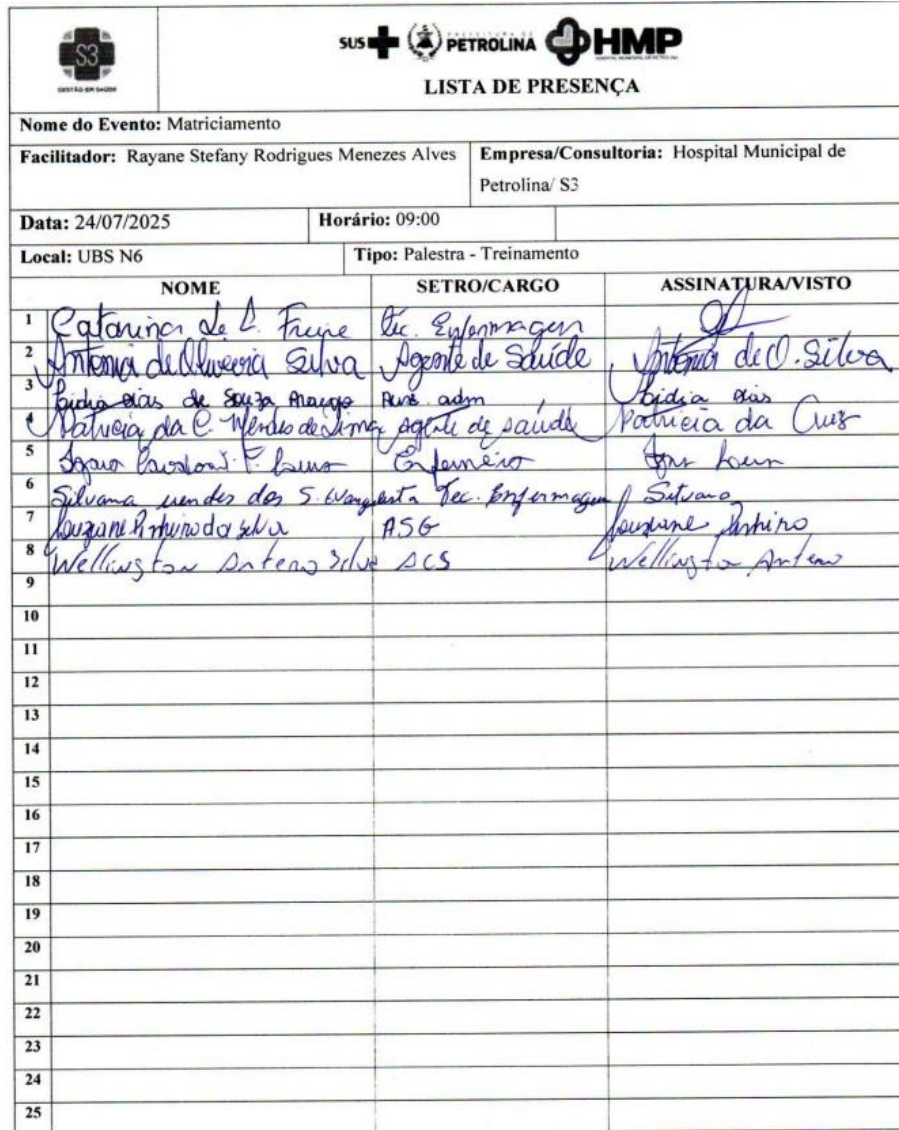 S3
GESTÃO EM SAÚDE
SUS PREFEITURA DE PETROLINA HMP
HOSPITAL MUNICIPAL DE PETROLINA
LISTA DE PRESENÇA
Nome do Evento: Matriciamento
Facilitador: Rayane Stefany Rodrigues Menezes Alves Empresa/Consultoria: Hospital Municipal de
Petrolina/ S3
Data: 24/07/2025 Horário: 09:00
Local: UBS N6 Tipo: Palestra - Treinamento
NOME SETRO/CARGO ASSINATURA/VISTO
1 Catarina de L. Freire Téc. Enfermagem
2 Antonia de Oliveira Silva Agente de Saúde Antonia de O. Silva
3 Lidia dias de Souza Araujo Aux. adm Lidia dias
4 Patricia da C. Mendes de Lima agente de saúde Patricia da Cruz
5 Enfermeiro
6 Silvana mendes dos S. Evangelista Tec. Enfermagem Silvana
7 Louziane Pinheiro da Silva ASG Louziane Pinheiro
8 Wellington Antero Silva ACS Wellington Antero
9
10
11
12
13
14
15
16
17
18
19
20
21
22
23
24
25